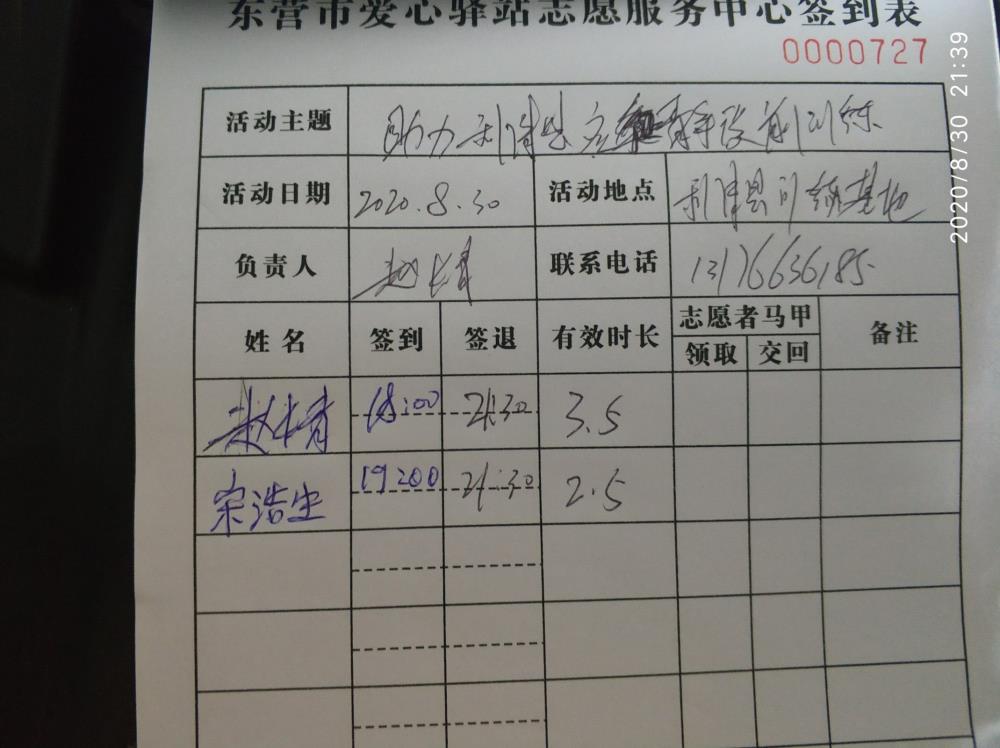 东营市爱心驿站志愿服务中心签到表
0000727
2020/8/30 21:39
活动主题 助力利津县 训练
活动日期 2020.8.30 活动地点 利津县训练基地
负责人 赵长青 联系电话 13176636185
姓名 签到 签退 有效时长 志愿者马甲 备注
领取 交回
赵长青 18:00 21:30 3.5
宋浩生 19:00 21:30 2.5